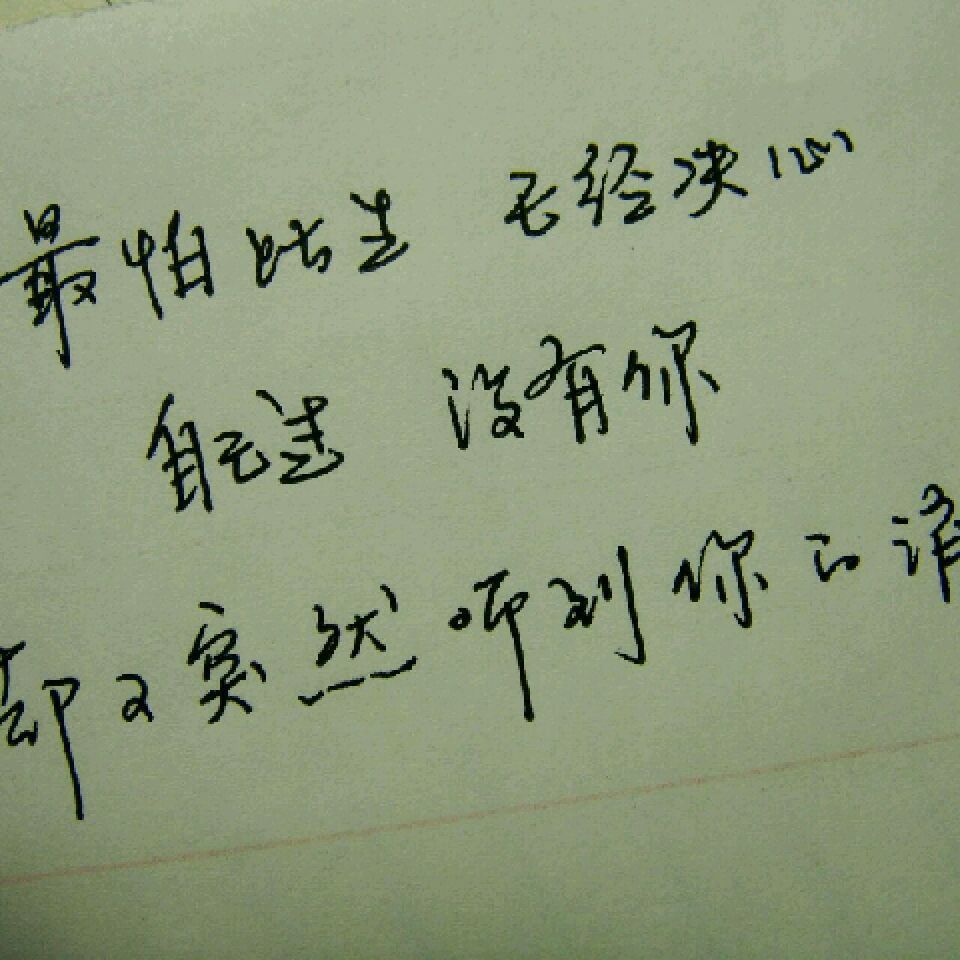 最怕此生 已经决心
自己过 没有你
却又突然听到你的消